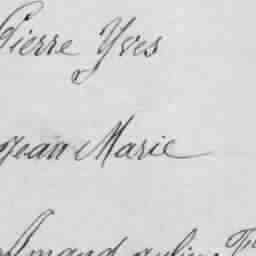 Pierre Yves
Jean Marie
Amand